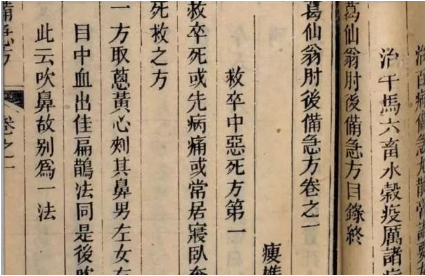 治百病備急丸散膏諸要
治牛馬六畜水穀疫厲諸
葛仙翁肘後備急方目錄終
葛仙翁肘後備急方卷之一
瘦樵
救卒中惡死方第一
救卒死或先病痛或常居寢臥奄
死救之方
一方取葱黃心刺其鼻男左女右
目中血出佳扁鵲法同是後吹
此云吹鼻故別為一法
備急方 卷之一